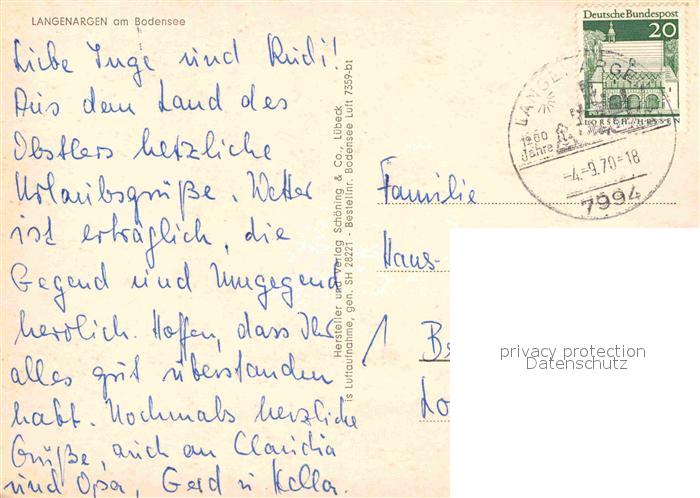 LANGENARGEN am Bodensee
Liebe Inge und Rudi!
Aus dem Land des
Obstlers herzliche
Urlaubsgrüße. Wetter
ist erträglich, die
Gegend und Umgegend
herrlich. Hoffen, dass Ihr
alles gut überstanden
habt. Nochmals herzliche
Grüße, auch an Claudia
und Opa, Gerd u. Kella.
Hersteller und Verlag Schöning & Co., Lübeck
is Luftaufnahme, gen. SH 28221 - Bestellnr. Bodensee Luft 7359-b1
Deutsche Bundespost
20
LORSCH/HESSEN
LANGENARGEN
1200
Jahre
-4.-9.70-18
7994
Familie
Hans-
1 Be
Lo
privacy protection
Datenschutz